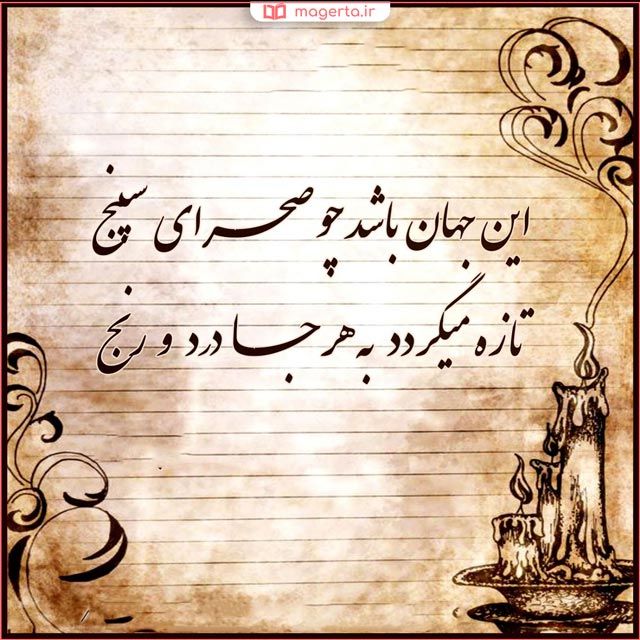 magerta.ir
این جهان باشد چو صحرای سپنج
تازه میگردد به هر جا درد و رنج